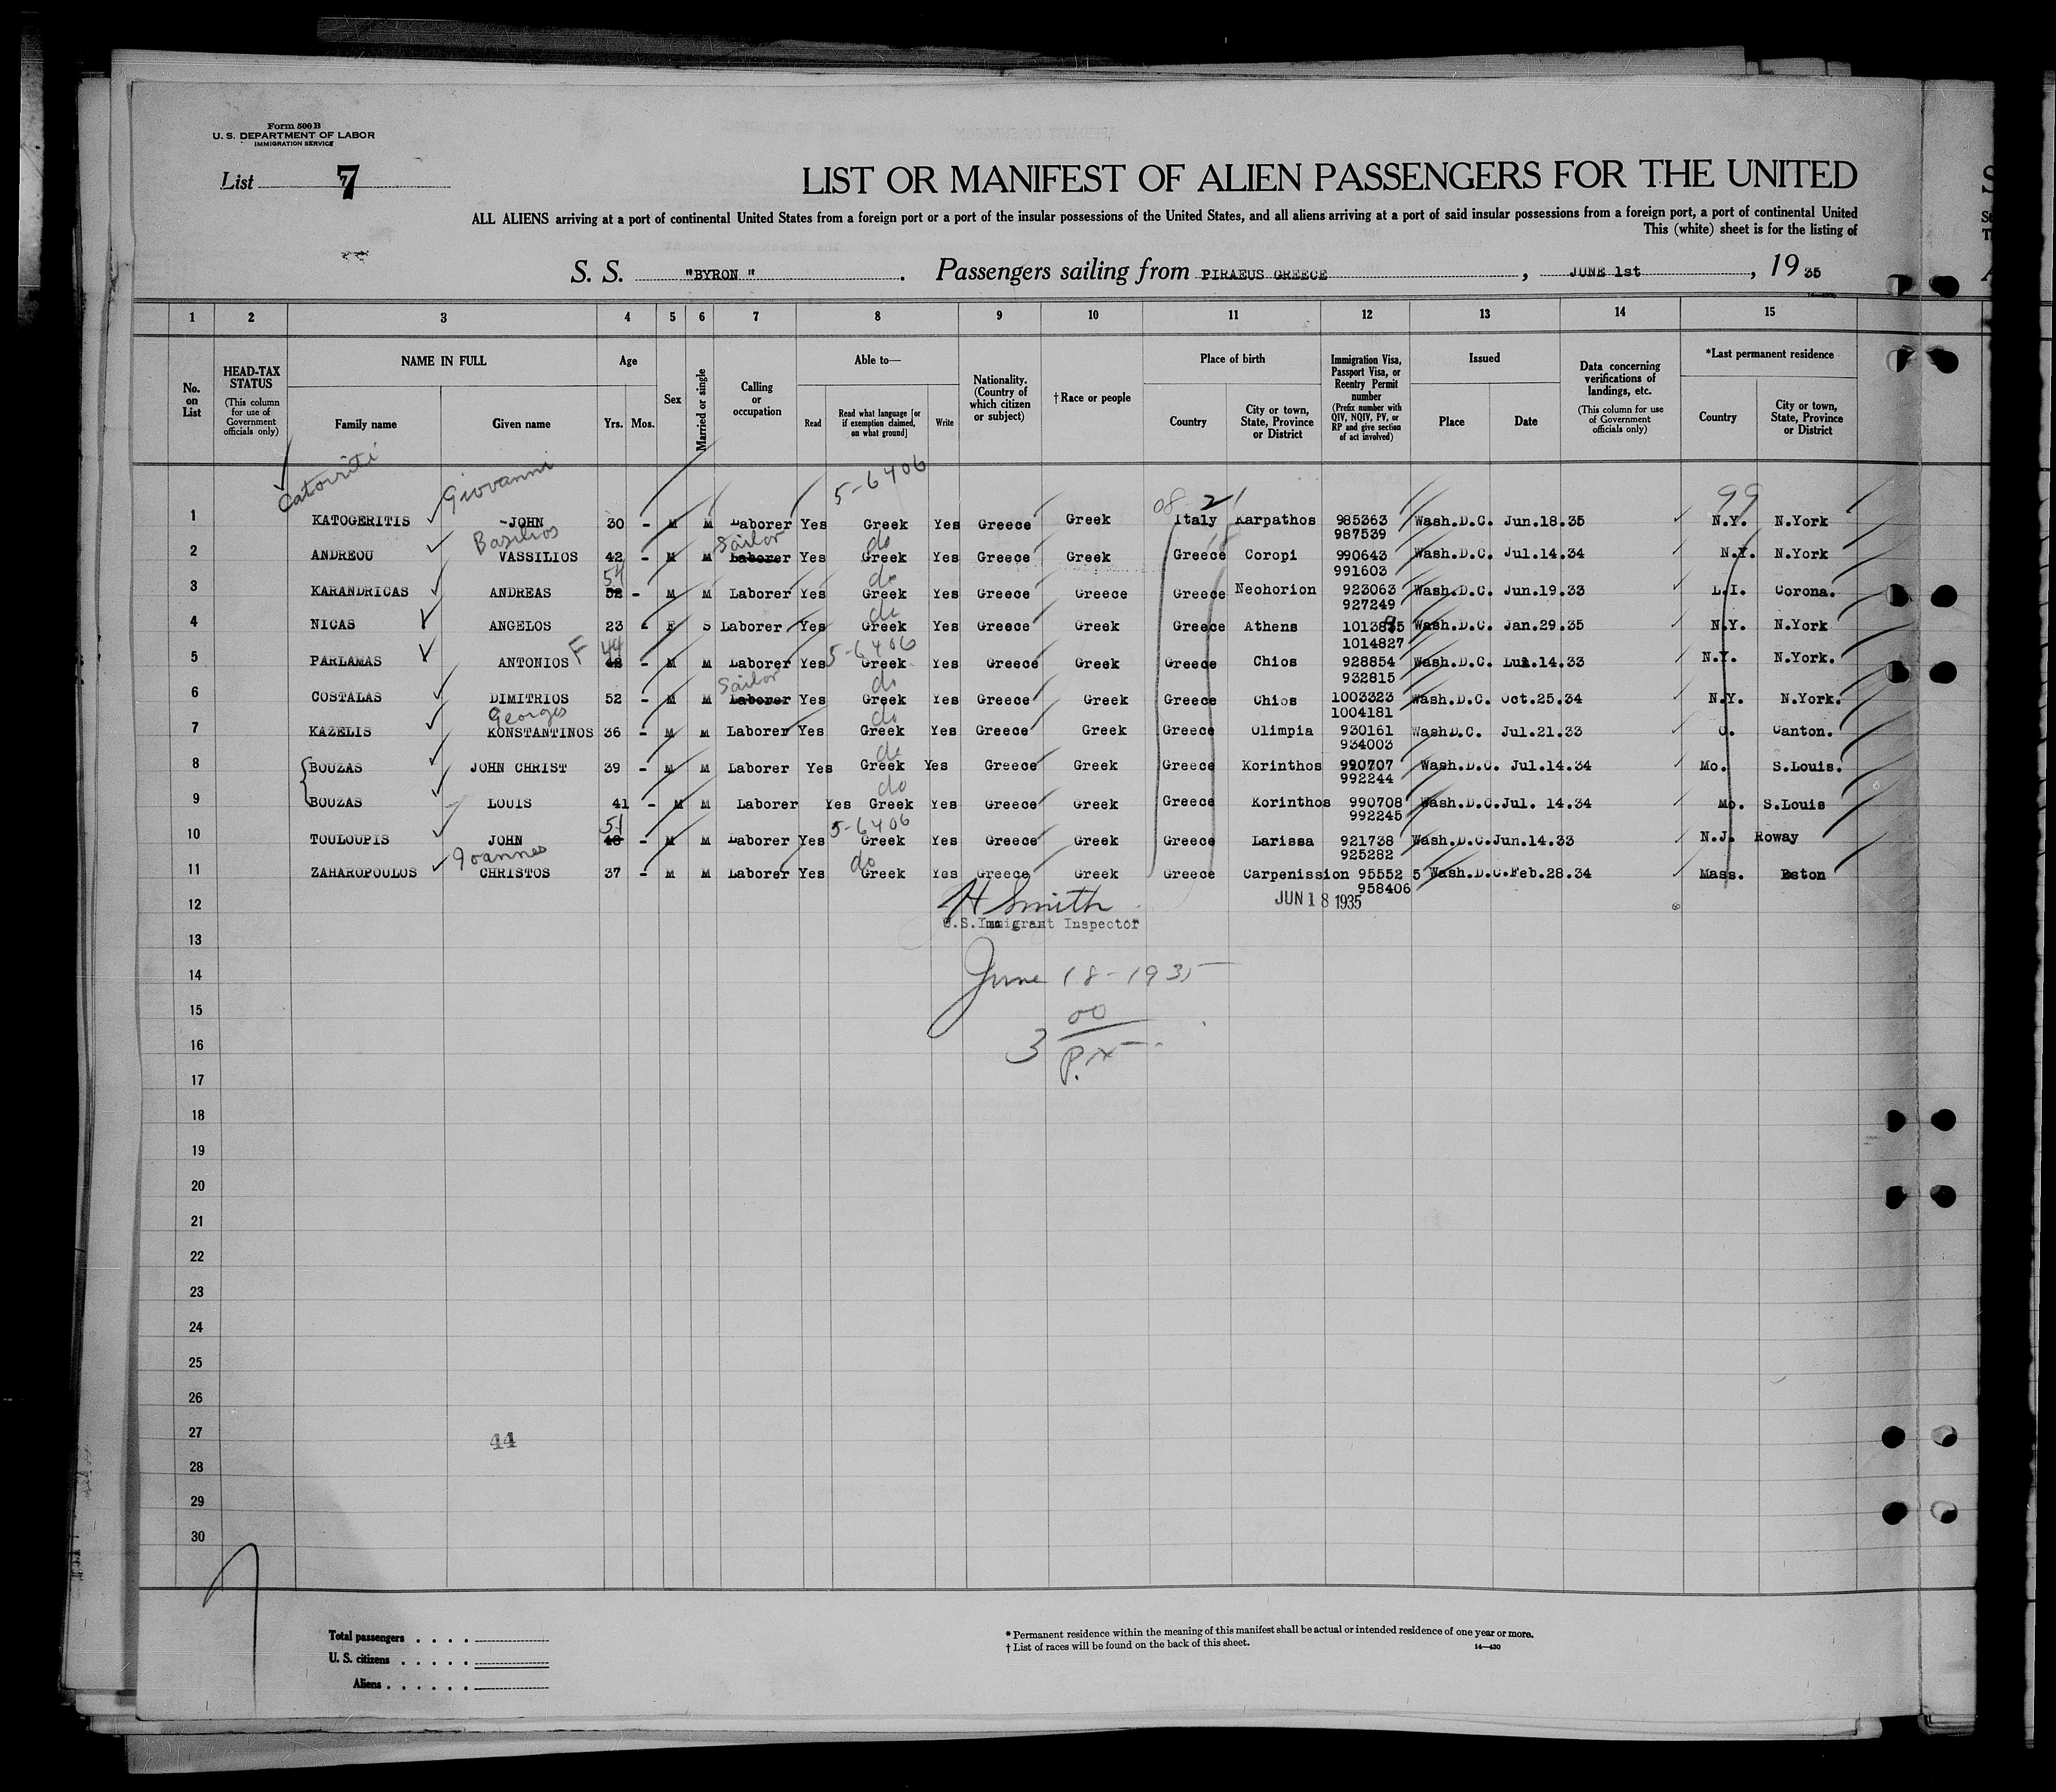 Form 500 B
U. S. DEPARTMENT OF LABOR
IMMIGRATION SERVICE
List 7
LIST OR MANIFEST OF ALIEN PASSENGERS FOR THE UNITED
ALL ALIENS arriving at a port of continental United States from a foreign port or a port of the insular possessions of the United States, and all aliens arriving at a port of said insular possessions from a foreign port, a port of continental United
This (white) sheet is for the listing of
S. S. "BYRON". Passengers sailing from PIRAEUS GREECE, JUNE 1st, 1935
1 2 3 4 5 6 7 8 9 10 11 12 13 14 15
No. on List
HEAD-TAX STATUS
(This column for use of Government officials only)
NAME IN FULL
Family name
Given name
Age
Yrs. Mos.
Sex
Married or single
Calling or occupation
Able to—
Read
Read what language [or if exemption claimed, on what ground]
Write
Nationality. (Country of which citizen or subject)
† Race or people
Place of birth
Country
City or town, State, Province or District
Immigration Visa, Passport Visa, or Reentry Permit number
(Prefix number with QIV, NQIV, PV, or RP and give section of act involved)
Issued
Place
Date
Data concerning verifications of landings, etc.
(This column for use of Government officials only)
*Last permanent residence
Country
City or town, State, Province or District
Catoriti Giovanni 5-6406 08 2 99
1 KATOGERITIS -JOHN 30 - M M Laborer Yes Greek Yes Greece Greek Italy Karpathos 985363 Wash.D.C. Jun.18.35 N.Y. N.York
987539
Basilios Sailor do
2 ANDREOU VASSILIOS 42 - M M Laborer Yes Greek Yes Greece Greek Greece Coropi 990643 Wash.D.C. Jul.14.34 N.Y. N.York
991603
54 do
3 KARANDRICAS ANDREAS 52 - M M Laborer Yes Greek Yes Greece Greece Greece Neohorion 923063 Wash.D.C. Jun.19.33 L.I. Corona.
927249
do
4 NICAS ANGELOS 23 - F S Laborer Yes Greek Yes Greece Greek Greece Athens Wash.D.C. Jan.29.35 N.Y. N.York
1014827
F 44 5-6406
5 PARLAMAS ANTONIOS 42 - M M Laborer Yes Greek Yes Greece Greek Greece Chios 928854 Wash.D.C. 14.33 N.Y. N.York.
932815
Sailor do
6 COSTALAS DIMITRIOS 52 - M M Laborer Yes Greek Yes Greece Greek Greece Chios 1003323 Wash.D.C. Oct.25.34 N.Y. N.York.
1004181
Georges do
7 KAZELIS KONSTANTINOS 36 - M M Laborer Yes Greek Yes Greece Greek Greece Olimpia 930161 Wash.D.C. Jul.21.33 O. Canton.
934003
do
8 BOUZAS JOHN CHRIST 39 - M M Laborer Yes Greek Yes Greece Greek Greece Korinthos 990707 Wash.D.C. Jul.14.34 Mo. S.Louis.
992244
do
9 BOUZAS LOUIS 41 - M M Laborer Yes Greek Yes Greece Greek Greece Korinthos 990708 Wash.D.C.Jul. 14.34 Mo. S.Louis
992245
51 5-6406
10 TOULOUPIS JOHN 48 - M M Laborer Yes Greek Yes Greece Greek Greece Larissa 921738 Wash.D.C.Jun.14.33 N.J. Roway
925282
Joannes do
11 ZAHAROPOULOS CHRISTOS 37 - M M Laborer Yes Greek Yes Greece Greek Greece Carpenission 95552 5 Wash.D.C.Feb.28.34 Mass. Bston
958406
12 H Smith JUN 18 1935
U.S.Immigrant Inspector
13
14 June 18-1935
15 00
16 3
17
18
19
20
21
22
23
24
25
26
27 44
28
29
30
7
Total passengers . . . .
U. S. citizens . . . . .
Aliens . . . . . .
* Permanent residence within the meaning of this manifest shall be actual or intended residence of one year or more.
† List of races will be found on the back of this sheet.
14—430